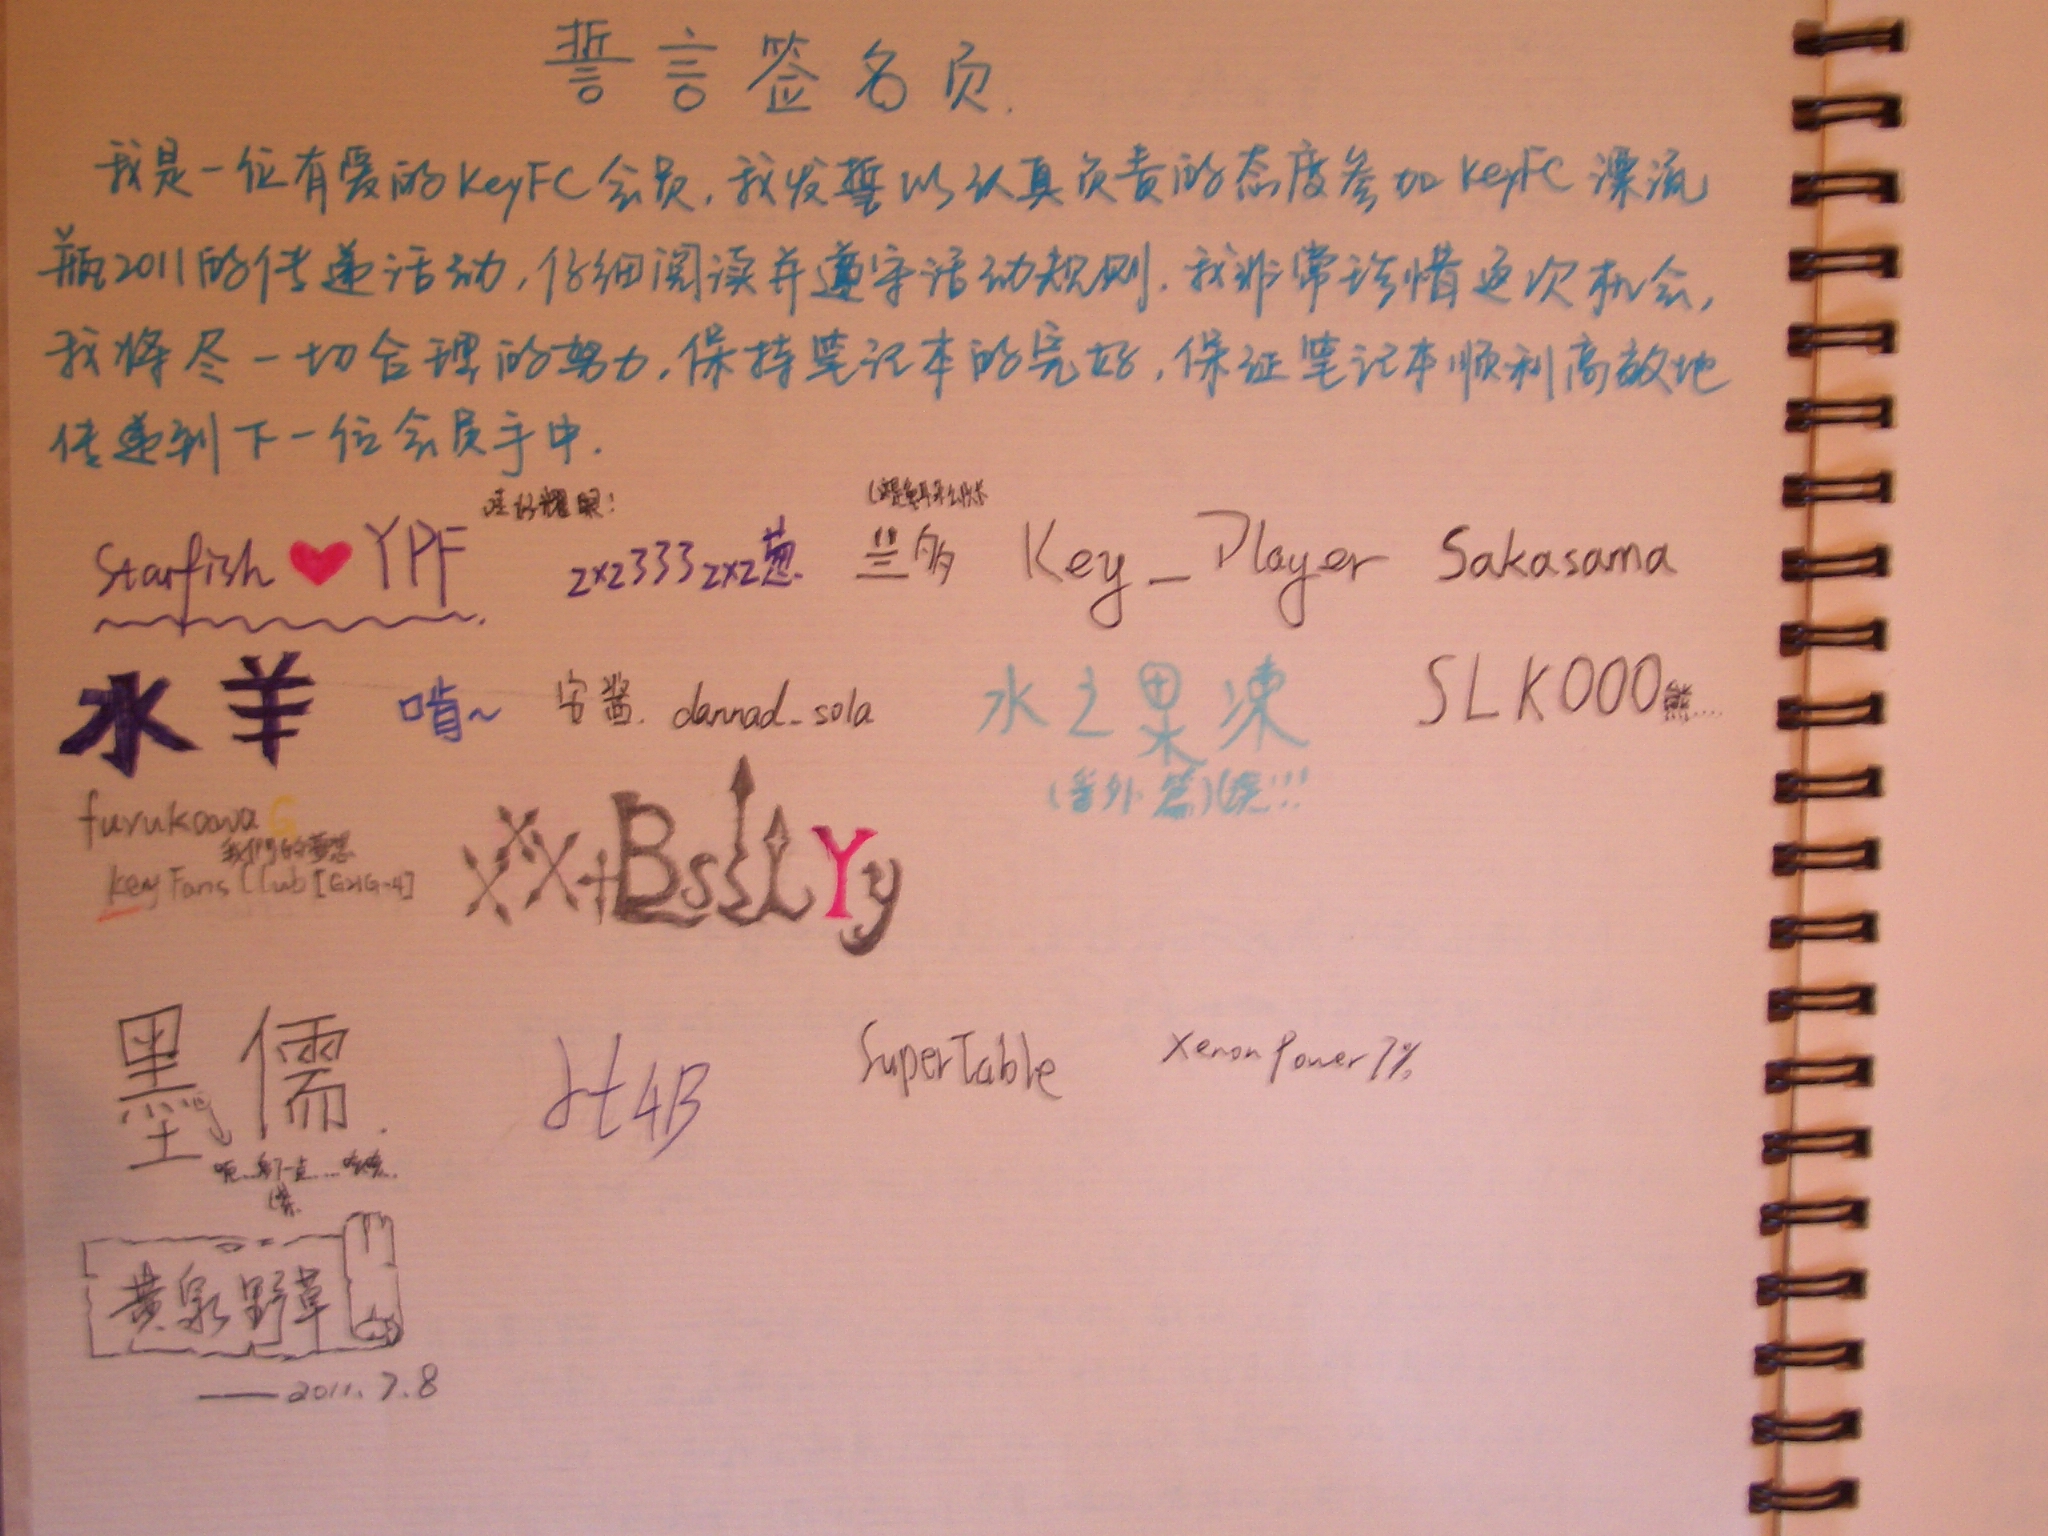 誓言签名页.
我是一位有爱的KeyFC会员,我发誓以认真负责的态度参加KeyFC漂流
瓶2011的传递活动,仔细阅读并遵守活动规则.我非常珍惜这次机会,
我将尽一切合理的努力,保持笔记本的完好,保证笔记本顺利高效地
传递到下一位会员手中.
哇好耀眼!
Starfish ❤ YPF 2x23332x2葱. 兰多 Key_Player Sakasama
水羊 啃~ 宕酱. dannad_sola 水之果冻 SLK000熊....
(番外篇)(烧!!!
furukawa G
我们的梦想
Key Fans Club [G2IG-4]
墨儒.
Jt4B SuperTable XenonPower7%
黄泉野草
——2011.7.8